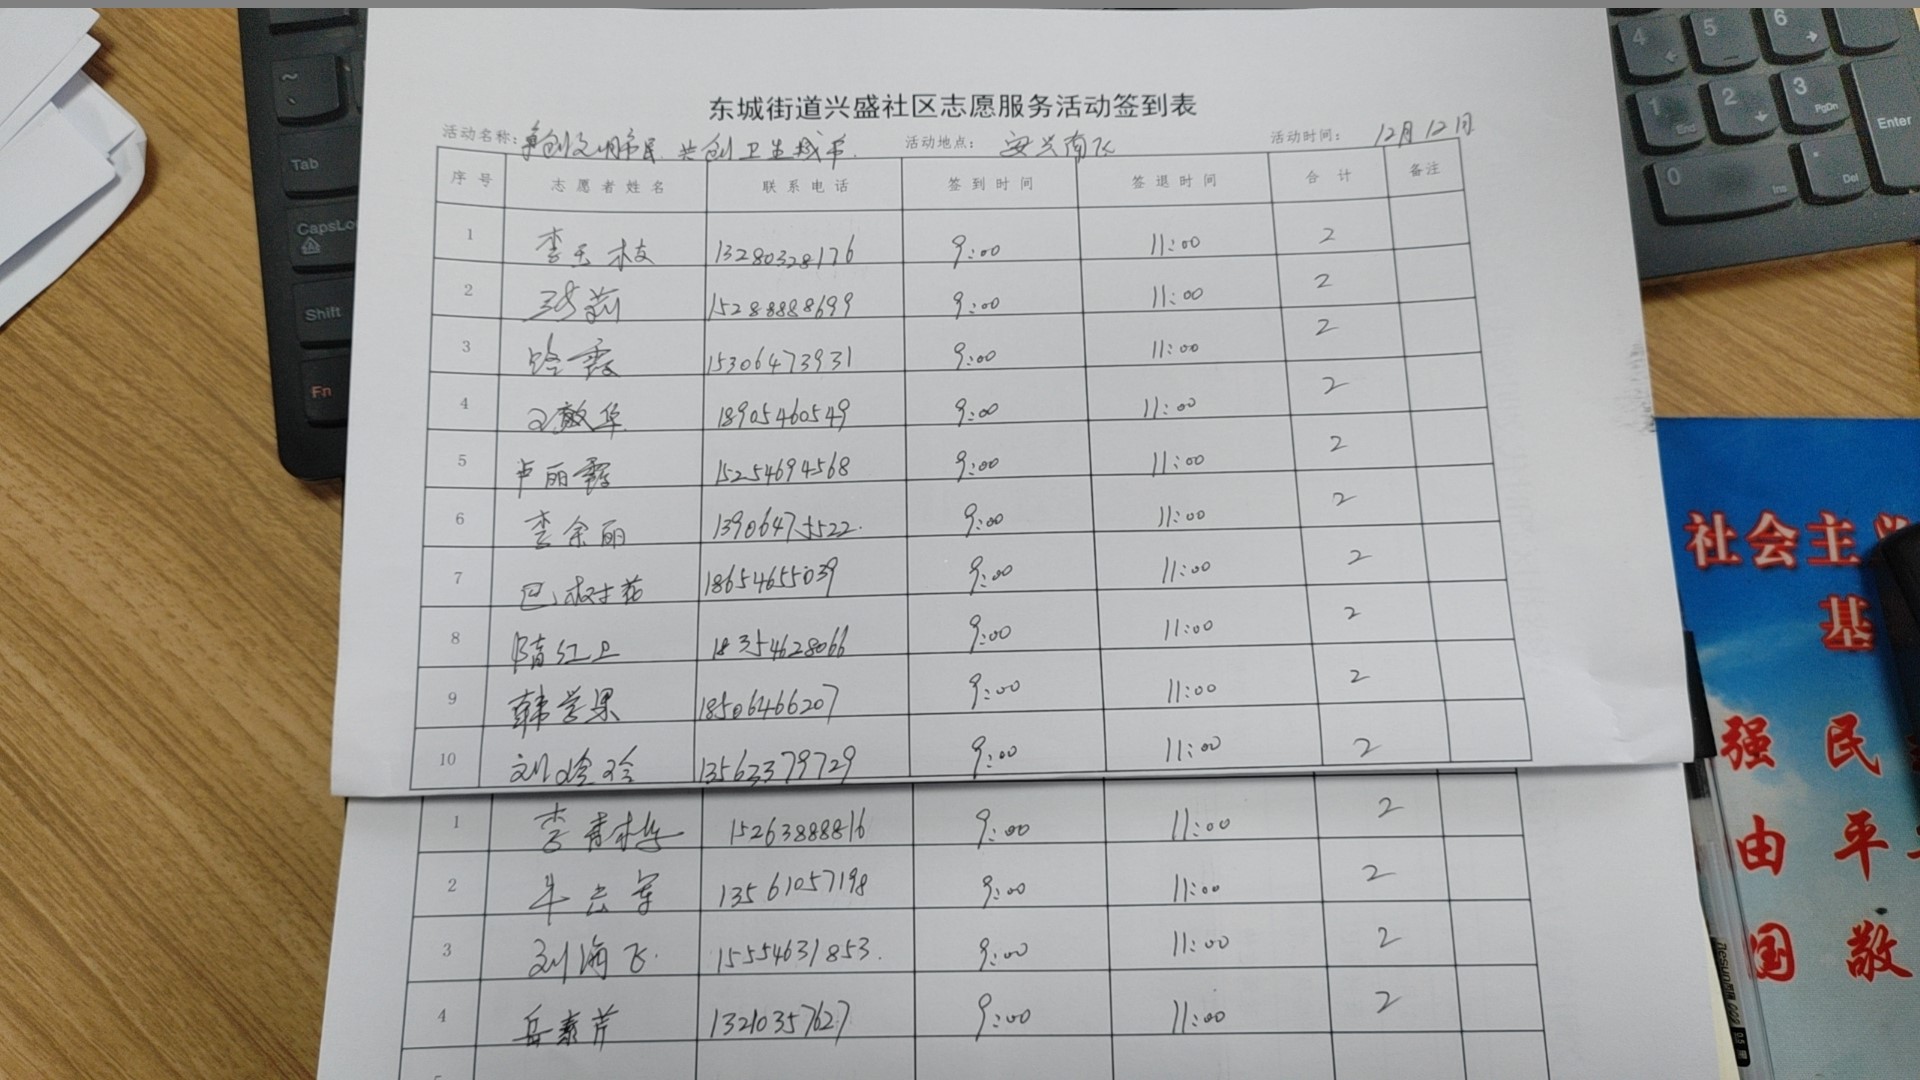 东城街道兴盛社区志愿服务活动签到表
活动名称: 争创文明市民 共创卫生城市 活动地点: 安兴南区 活动时间: 12月12日
序号 志愿者姓名 联系电话 签到时间 签退时间 合计 备注
1 李玉枝 13280328176 9:00 11:00 2
2 15288888699 9:00 11:00 2
3 15306473931 9:00 11:00 2
4 18905460549 9:00 11:00 2
5 卢丽霞 15254694568 9:00 11:00 2
6 李余丽 13906475522 9:00 11:00 2
7 巴树花 18654655039 9:00 11:00 2
8 隋红卫 18354628066 9:00 11:00 2
9 韩学果 18506466207 9:00 11:00 2
10 刘玲玲 13563379729 9:00 11:00 2
1 李青梅 15263888816 9:00 11:00 2
2 牛云军 13561057198 9:00 11:00 2
3 刘海飞 15554631853 9:00 11:00 2
4 岳素芹 13210357627 9:00 11:00 2
~
Tab
CapsLo
Shift
Fn
4 5 6
1 End 2 3 PgDn
Enter
0 Ins . Del
社会主义
基
强 民
由 平
国 敬